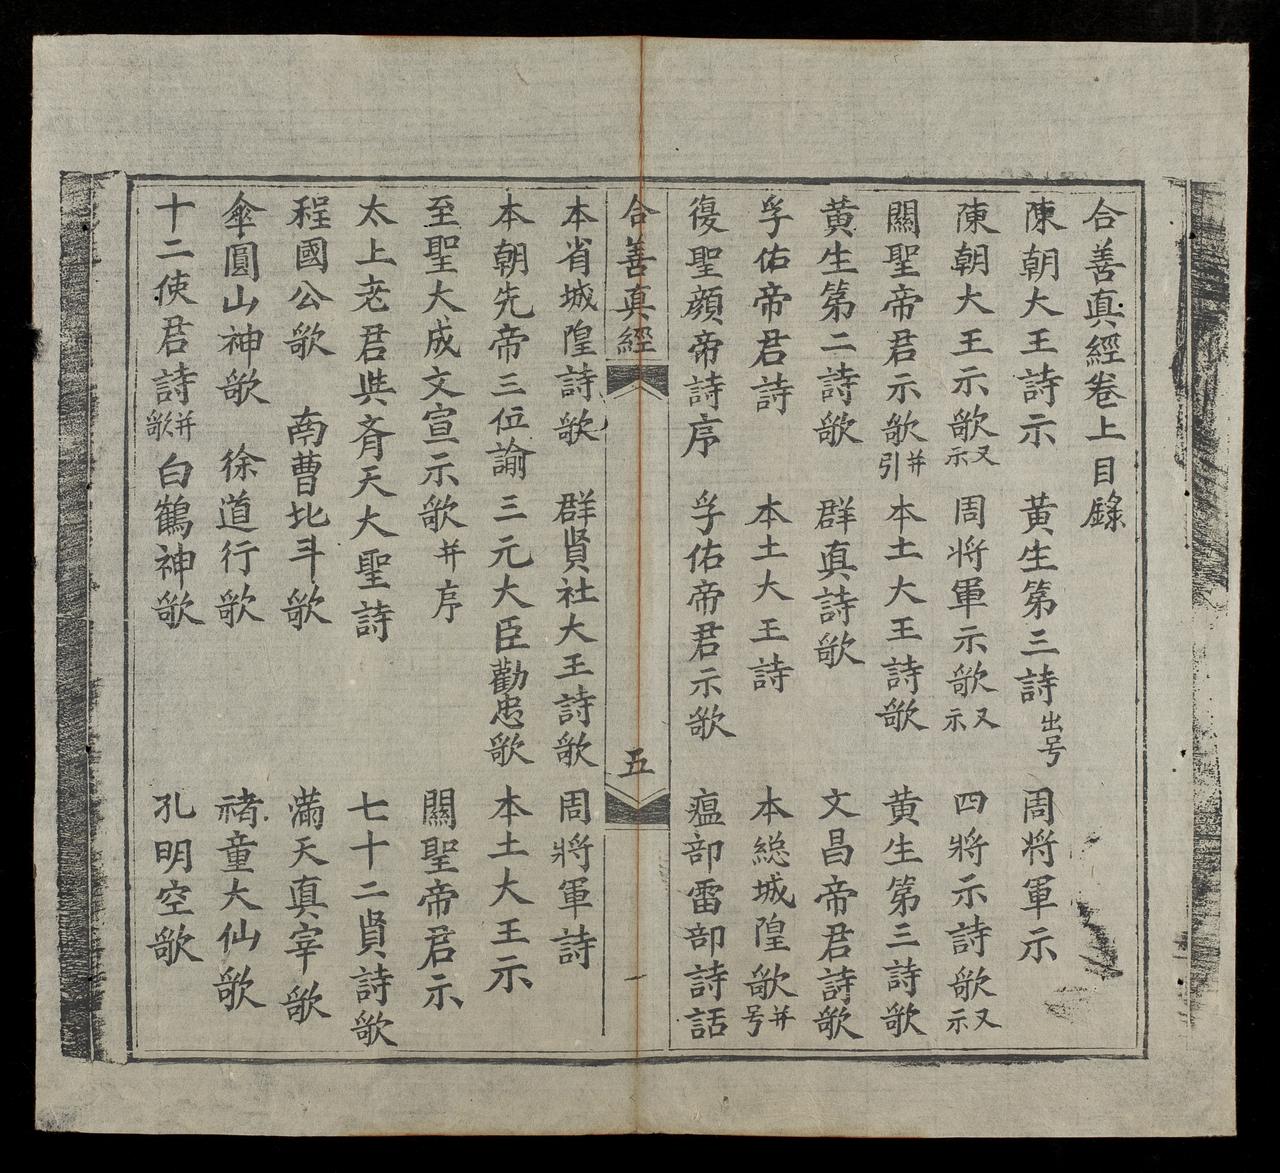 合善真經卷上目錄
陳朝大王詩示 黃生第三詩出号 周將軍示
陳朝大王示歌又示 周将軍示歌又示 四將示詩歌又示
關聖帝君示歌并引 本土大王詩歌 黄生第三詩歌
黄生第二詩歌 群真詩歌 文昌帝君詩歌
孚佑帝君詩 本土大王詩 本総城隍歌并号
復聖顔帝詩序 孚佑帝君示歌 瘟部雷部詩話
合善真經 五 一
本省城隍詩歌 群賢社大王詩歌 周將軍詩
本朝先帝三位諭 三元大臣勸忠歌 本土大王示
至聖大成文宣示歌并序 關聖帝君示
太上老君與齊天大聖詩 七十二賢詩歌
程國公歌 南曹北斗歌 滿天真宰歌
傘圓山神歌 徐道行歌 禇童大仙歌
十二使君詩并歌 白鶴神歌 孔明空歌